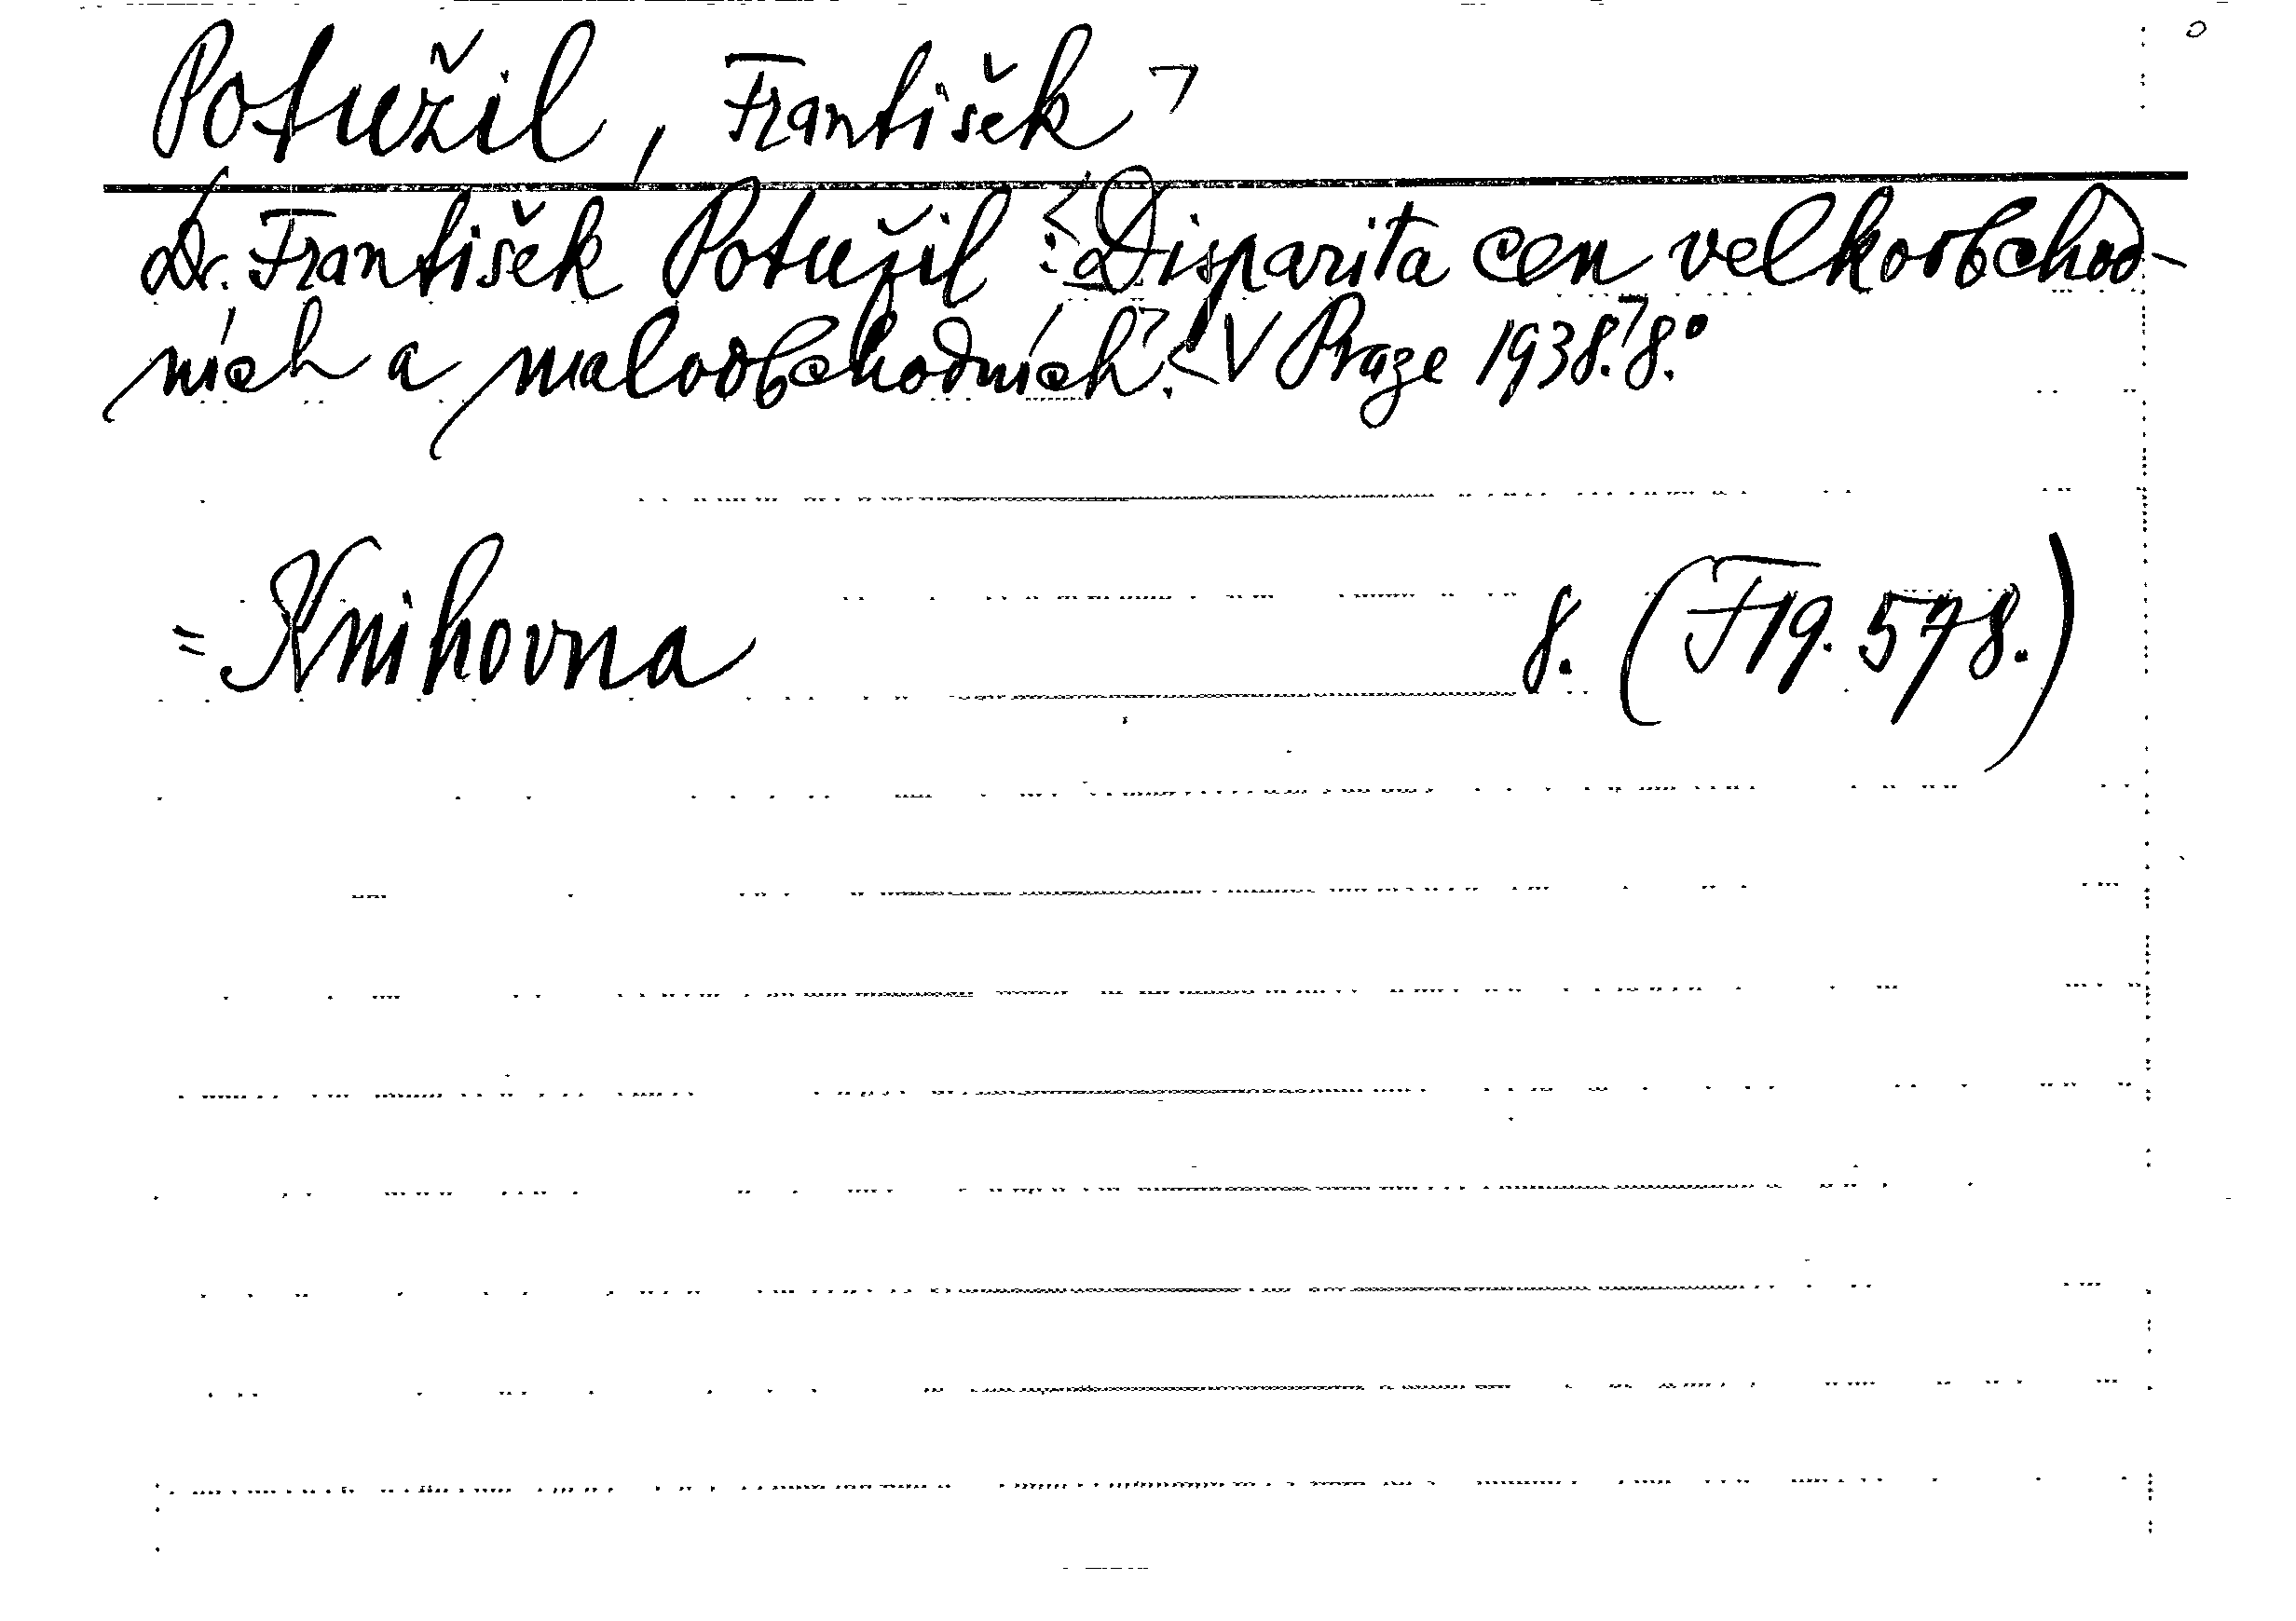 Potužil, František
Dr. František Potužil: Disparita cen velkoobchod-
ních a maloobchodních. V Praze 1938. 8.°
= Knihovna 8. (F19.578.)